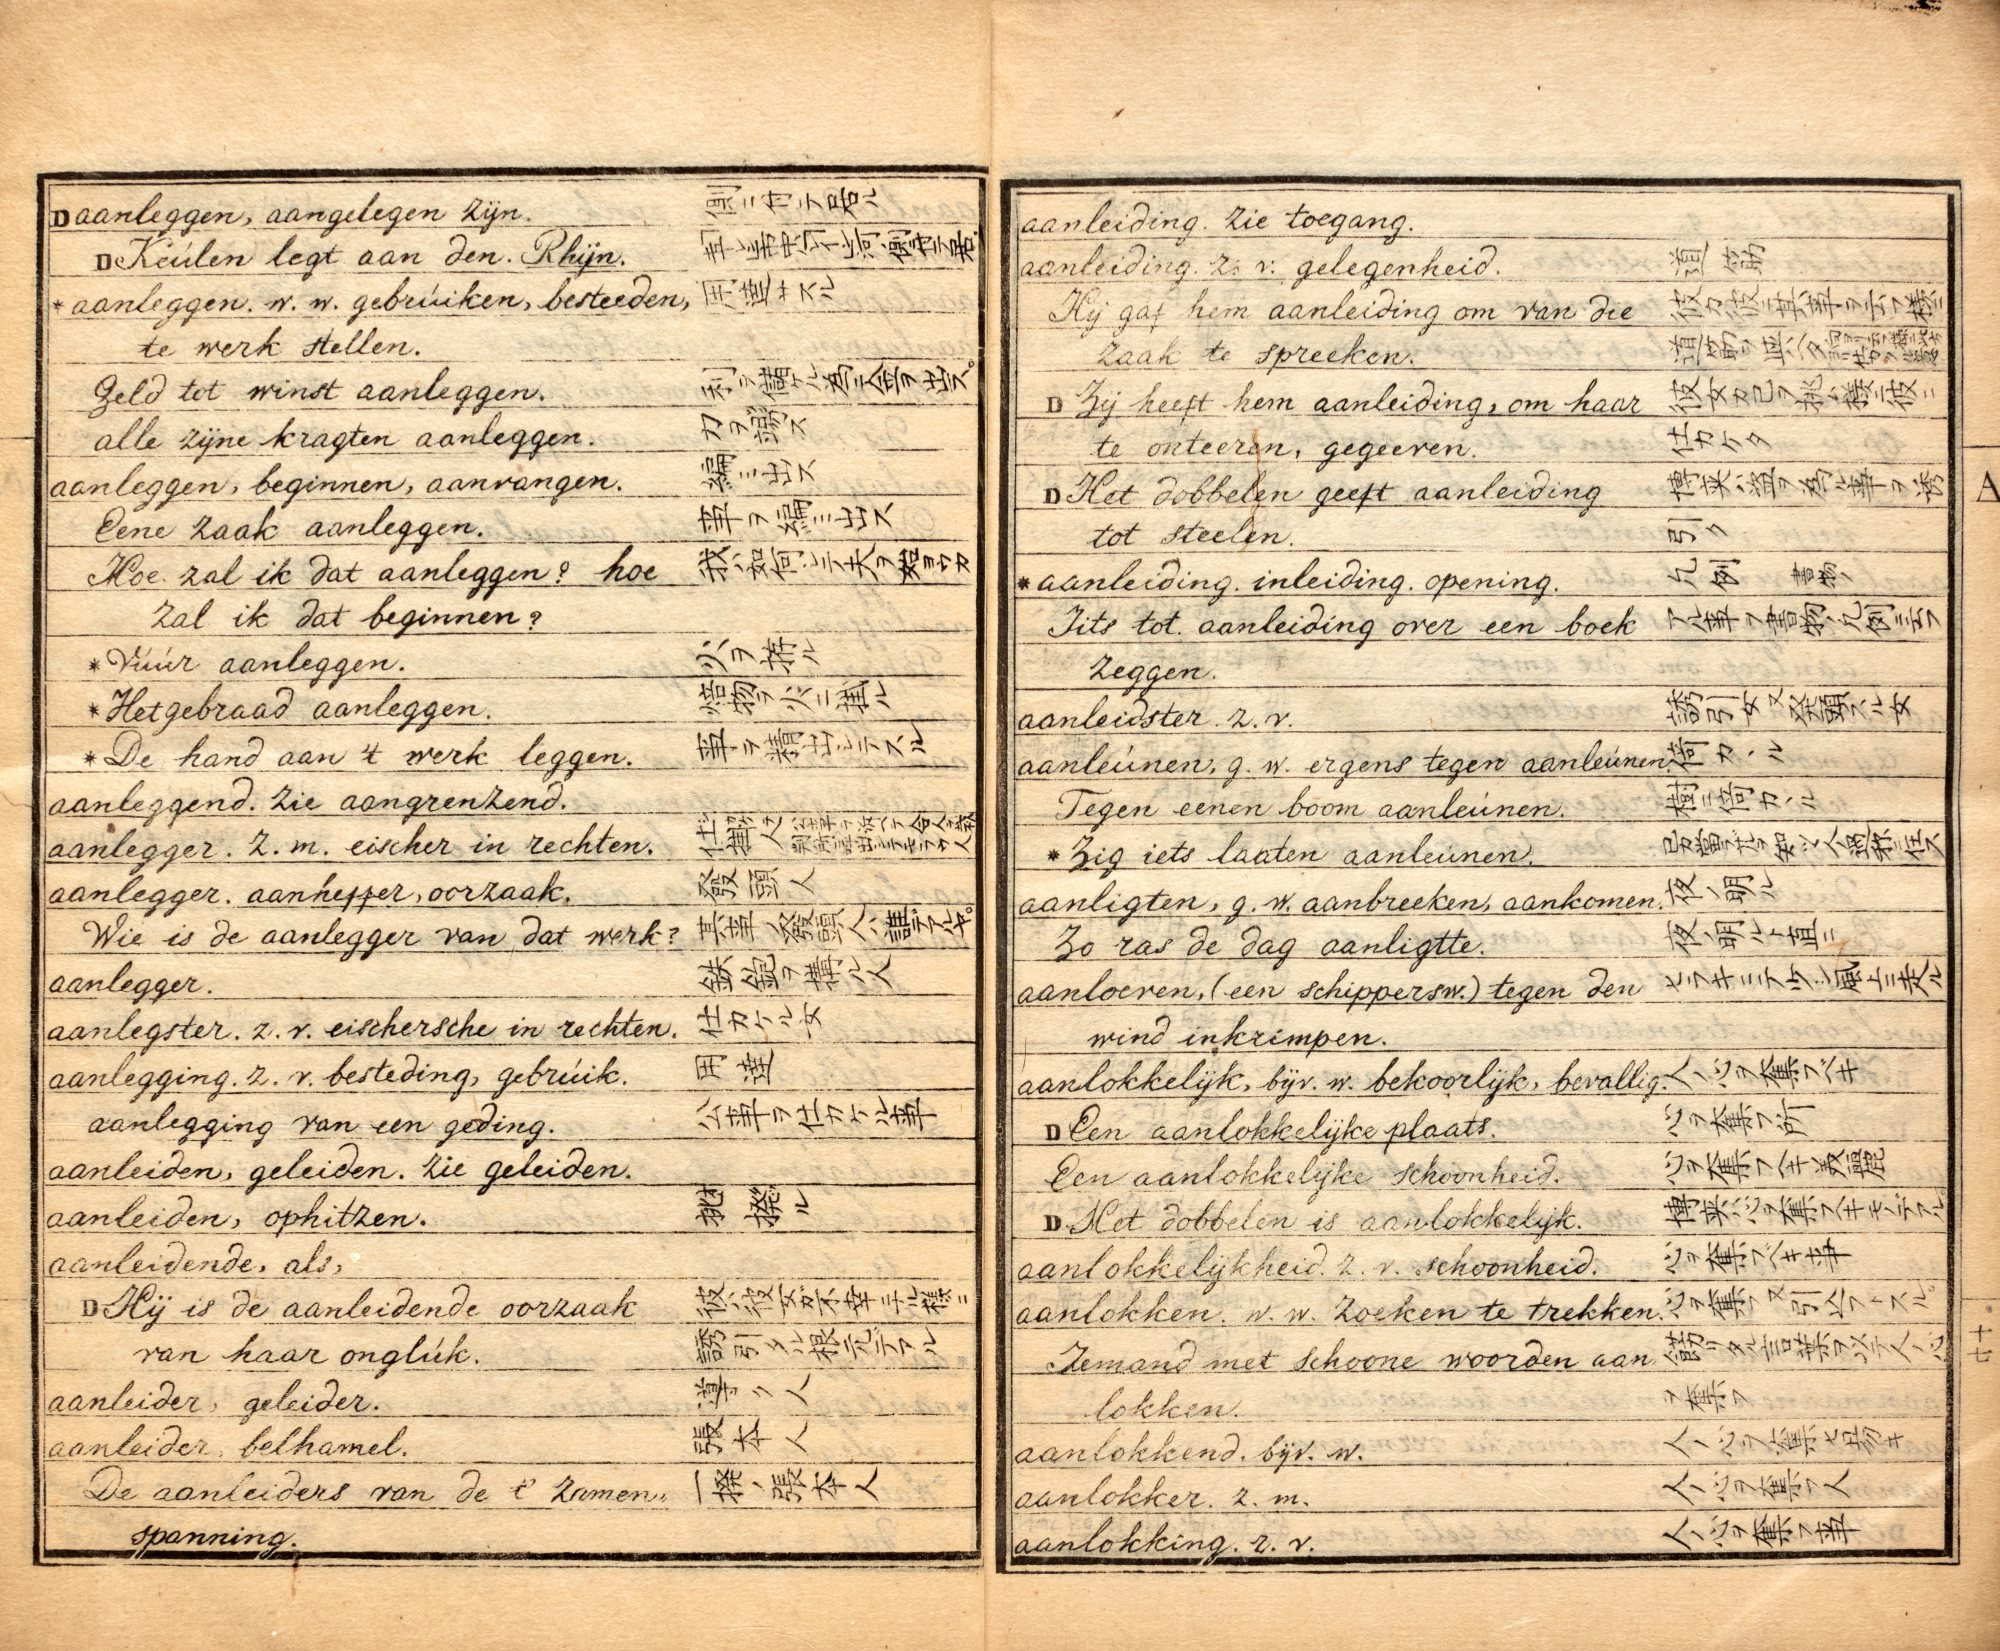 D aanleggen, aangelegen zijn. 側ニ付テ居ル
D Keúlen legt aan den. Rhijn.
* aanleggen. w. w. gebrúiken, besteeden, 用達サスル
te werk stellen.
Geld tot winst aanleggen. 利ヲ儲ケル為ニ金ヲ出ス。
alle zijne kragten aanleggen. 力ヲ竭ス
aanleggen, beginnen, aanvangen. 編ミ出ス
Eene zaak aanleggen. 事ヲ編ミ出ス
Hoe zal ik dat aanleggen? hoe 我ハ如何シテ夫ヲ始ヨウカ
zal ik dat beginnen?
* Vúúr aanleggen. 火ヲ拵ル
* Het gebraad aanleggen. 焙物ヲ火ニ掛ル
* De hand aan 't werk leggen. 事ヲ精出シテスル
aanleggend. zie aangrenzend.
aanlegger. z. m. eischer in rechten.
aanlegger. aanheffer, oorzaak. 發頭人
Wie is de aanlegger van dat werk? 其事ノ發頭人ハ誰デアルヤ。
aanlegger. 鉄鉋ヲ構ル人
aanlegster. z. v. eischersche in rechten. 仕カケル女
aanlegging. z. v. besteding, gebrúik. 用達
aanlegging van een geding. 公事ヲ仕カケル事
aanleiden, geleiden. zie geleiden.
aanleiden, ophitzen. 挑撥ル
aanleidende, als,
D Hij is de aanleidende oorzaak 彼ハ彼女ガ不幸ニナル様ニ
van haar onglúk. 誘引タル根元デアル
aanleider, geleider. 導ク人
aanleider, belhamel. 張本人
De aanleiders van de t' zamen„ 一揆ノ張本人
spanning.
aanleiding. zie toegang.
aanleiding. z. v. gelegenheid. 道筋
Hij gaf hem aanleiding om van die 彼カ彼ニ其事ヲ云フ様ニ
zaak te spreeken.
D Zij heeft hem aanleiding, om haar 彼女カ己ヲ挑ム様ニ彼ニ
te onteeren, gegeeven. 仕カケタ
D Het dobbelen geeft aanleiding 博奕ハ盗ヲ為ル事ヲ誘
tot steelen. 引ク
* aanleiding. inleiding. opening. 凡例 書物ノ
Iits tot aanleiding over een boek アル事ヲ書物ノ凡例ニ云フ
zeggen.
aanleidster. z. v. 誘引女又発頭スル女
aanleúnen, g. w. ergens tegen aanleúnen. 倚カヽル
Tegen eenen boom aanleúnen. 樹ニ倚カヽル
* Zig iets laaten aanleúnen.
aanligten, g. w. aanbreeken, aankomen. 夜ノ明ル
Zo ras de dag aanligtte. 夜ノ明ルト直ニ
aanloeven, (een schippersw.) tegen den
wind inkrimpen.
aanlokkelijk, bijv. w. bekoorlijk, bevallig. 人ノ心ヲ奪フベキ
D Een aanlokkelijke plaats. 心ヲ奪フ所
Een aanlokkelijke schoonheid. 心ヲ奪フベキ美麗
D Het dobbelen is aanlokkelijk. 博奕ハ心ヲ奪フベキモノデアル
aanlokkelijkheid. z. v. schoonheid. 心ヲ奪フベキ事
aanlokken. w. w. zoeken te trekken. 心ヲ奪フ又引込フトスル。
Iemand met schoone woorden aan 餝リタル言葉ヲ以テ人ノ心
lokken. ヲ奪フ
aanlokkend. bijv. w. 人ノ心ヲ奪ヒ易キ
aanlokker. z. m. 人ノ心ヲ奪フ人
aanlokking. z. v. 人ノ心ヲ奪フ事
A